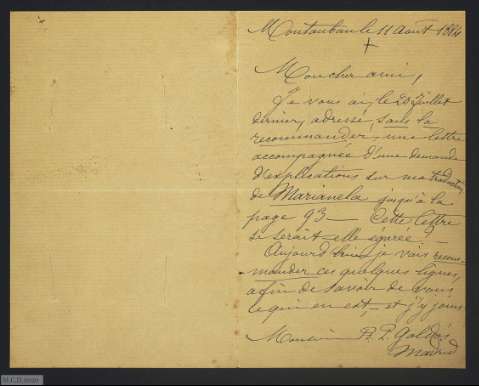 Montauban le 11 Août 1884
+
Mon cher ami,
Je vous ai, le 20 Juillet
dernier, adressé, sans la
recommander, une lettre
accompagnée d'une demande
d'explications sur ma traduction
de Marianela jusqu'à la
page 93 — Cette lettre
se serait-elle égarée? —
Aujourd'hui je vais recom-
mander ces quelques lignes,
afin de savoir de vous
ce qui en est, — et j'y joins
Monsieur B. P. Galdós
Madrid